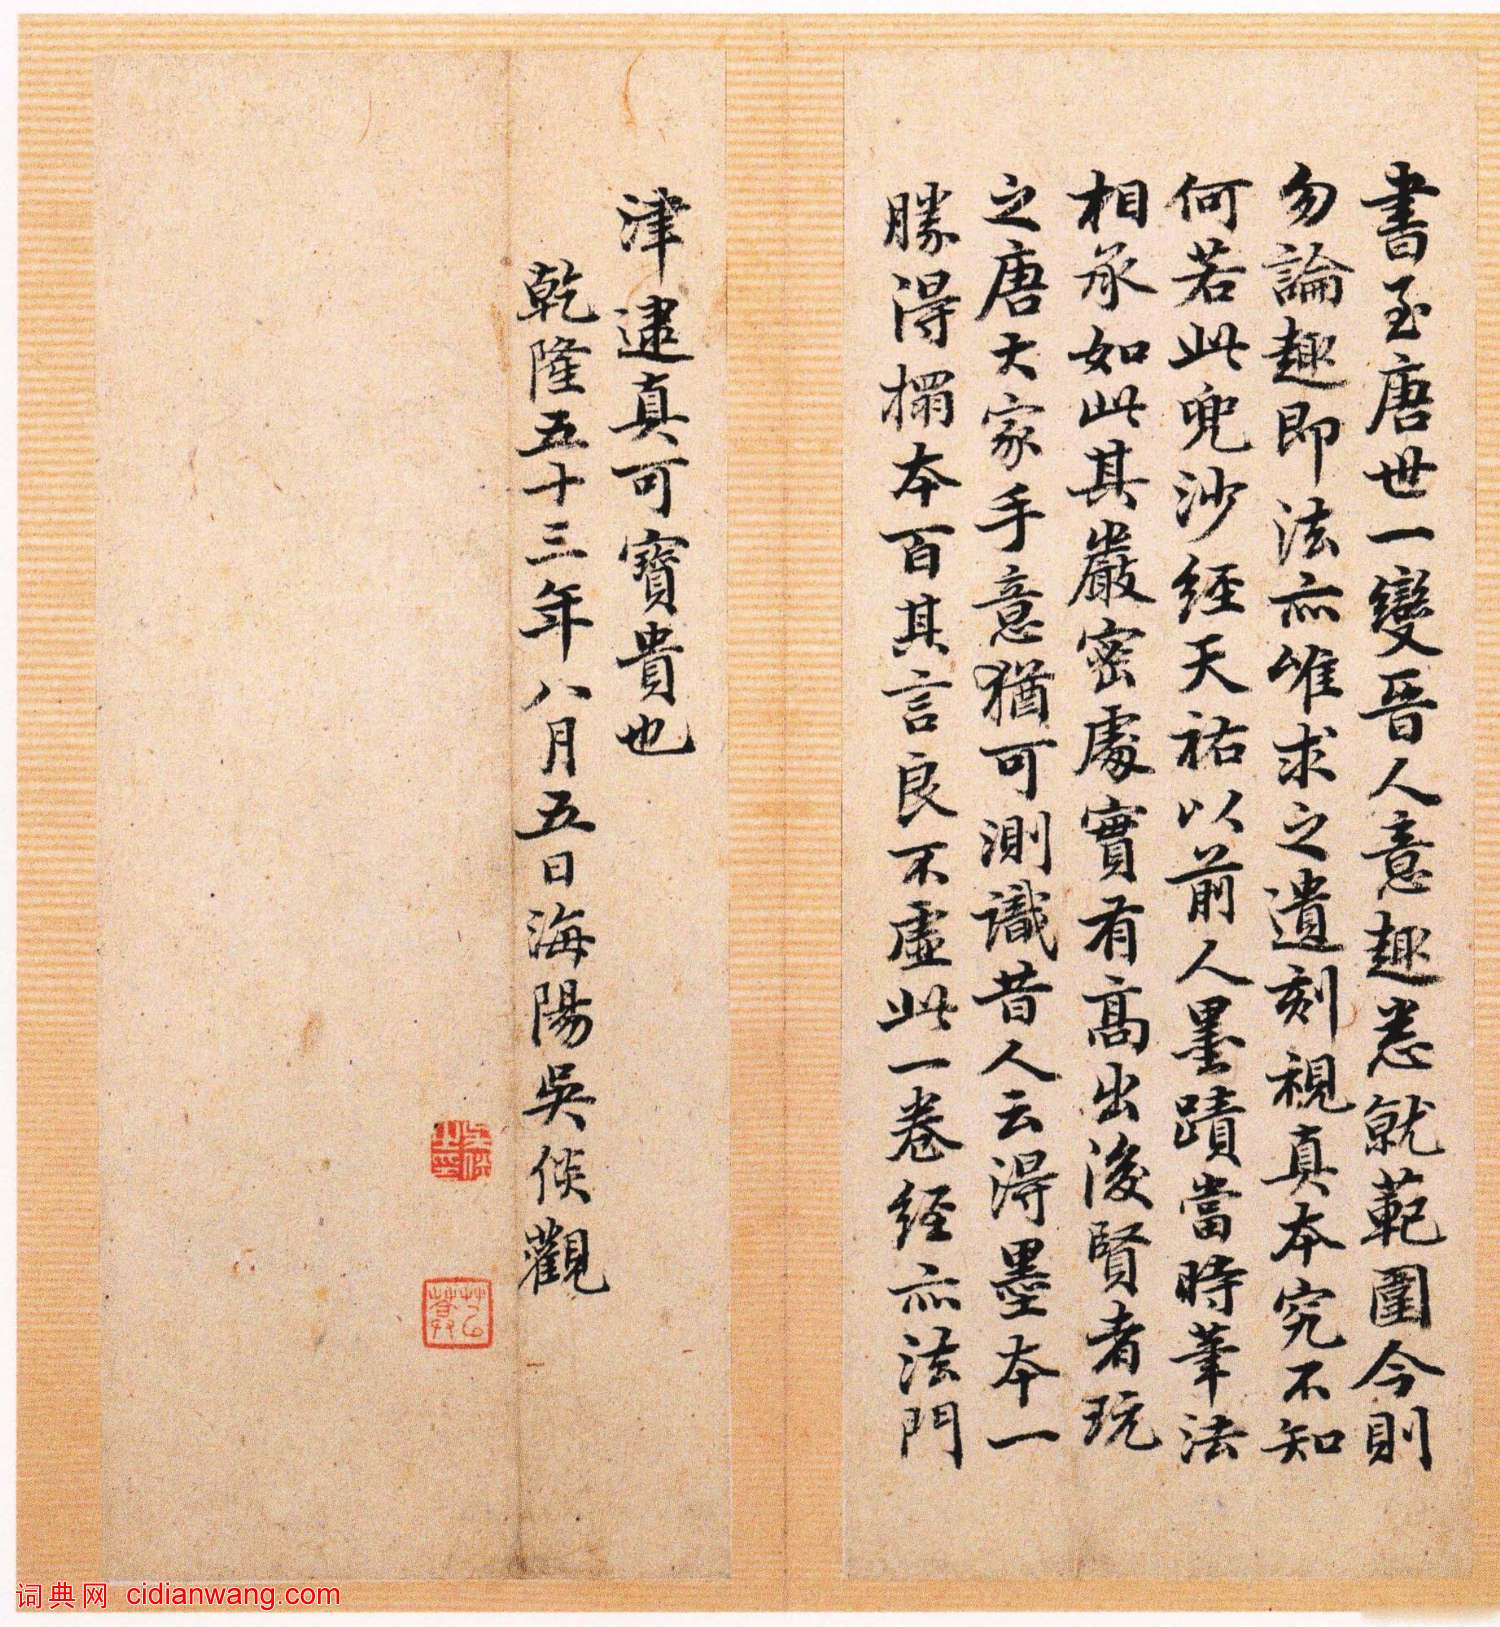 書至唐世一變晉人意趣悉就範圍今則
勿論趣即法亦唯求之遺刻視真本究不知
何若此兜沙經天祐以前人墨蹟當時筆法
相承如此其嚴密處實有高出後賢者玩
之唐大家手意猶可測識昔人云得墨本一
勝得搨本百其言良不虛此一卷經亦法門
津逮真可寶貴也
乾隆五十三年八月五日海陽吳倓觀
词典网 cidianwang.com